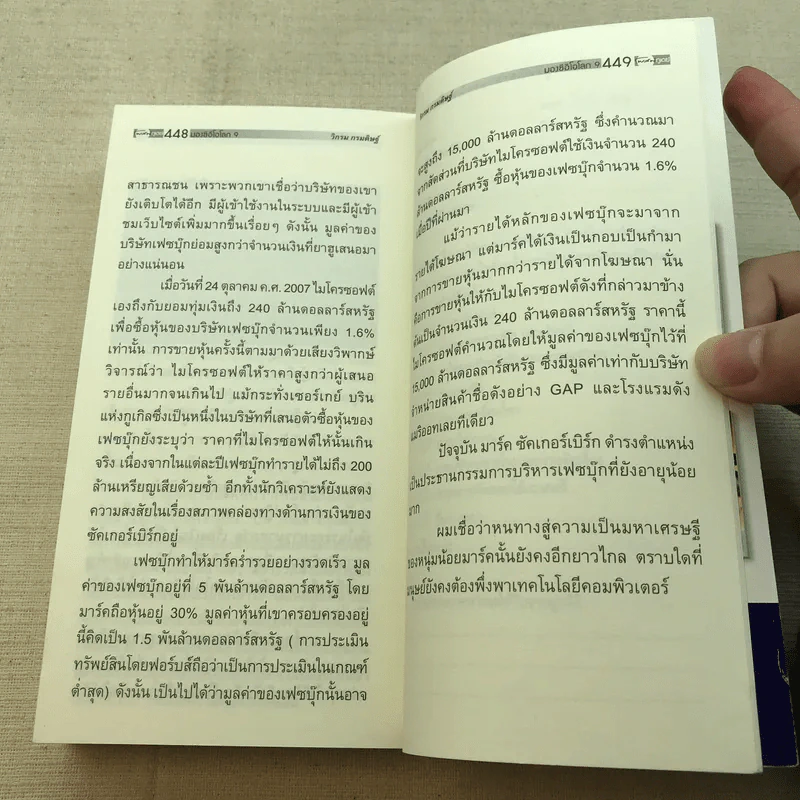 448 มองซีอีโอโลก 9 วิกรม กรมดิษฐ์
สาธารณชน เพราะพวกเขาเชื่อว่าบริษัทของเขา
ยังเติบโตได้อีก มีผู้เข้าใช้งานในระบบและมีผู้เข้า
ชมเว็บไซต์เพิ่มมากขึ้นเรื่อยๆ ดังนั้น มูลค่าของ
บริษัทเฟซบุ๊กย่อมสูงกว่าจำนวนเงินที่ยาฮูเสนอมา
อย่างแน่นอน
เมื่อวันที่ 24 ตุลาคม ค.ศ. 2007 ไมโครซอฟต์
เองถึงกับยอมทุ่มเงินถึง 240 ล้านดอลลาร์สหรัฐ
เพื่อซื้อหุ้นของบริษัทเฟซบุ๊กจำนวนเพียง 1.6%
เท่านั้น การขายหุ้นครั้งนี้ตามมาด้วยเสียงวิพากษ์
วิจารณ์ว่า ไมโครซอฟต์ให้ราคาสูงกว่าผู้เสนอ
รายอื่นมากจนเกินไป แม้กระทั่งเซอร์เกย์ บริน
แห่งกูเกิลซึ่งเป็นหนึ่งในบริษัทที่เสนอตัวซื้อหุ้นของ
เฟซบุ๊กยังระบุว่า ราคาที่ไมโครซอฟต์ให้นั้นเกิน
จริง เนื่องจากในแต่ละปีเฟซบุ๊กทำรายได้ไม่ถึง 200
ล้านเหรียญเสียด้วยซ้ำ อีกทั้งนักวิเคราะห์ยังแสดง
ความสงสัยในเรื่องสภาพคล่องทางด้านการเงินของ
ซัคเกอร์เบิร์กอยู่
เฟซบุ๊กทำให้มาร์คร่ำรวยอย่างรวดเร็ว มูล
ค่าของเฟซบุ๊กอยู่ที่ 5 พันล้านดอลลาร์สหรัฐ โดย
มาร์คถือหุ้นอยู่ 30% มูลค่าหุ้นที่เขาครอบครองอยู่
นี้คิดเป็น 1.5 พันล้านดอลลาร์สหรัฐ ( การประเมิน
ทรัพย์สินโดยฟอร์บส์ถือว่าเป็นการประเมินในเกณฑ์
ต่ำสุด) ดังนั้น เป็นไปได้ว่ามูลค่าของเฟซบุ๊กนั้นอาจ
วิกรม กรมดิษฐ์ มองซีอีโอโลก 9 449
จะสูงถึง 15,000 ล้านดอลลาร์สหรัฐ ซึ่งคำนวณมา
จากสัดส่วนที่บริษัทไมโครซอฟต์ใช้เงินจำนวน 240
ล้านดอลลาร์สหรัฐ ซื้อหุ้นของเฟซบุ๊กจำนวน 1.6%
เมื่อปีที่ผ่านมา
แม้ว่ารายได้หลักของเฟซบุ๊กจะมาจาก
รายได้โฆษณา แต่มาร์คได้เงินเป็นกอบเป็นกำมา
จากการขายหุ้นมากกว่ารายได้จากโฆษณา นั่น
คือการขายหุ้นให้กับไมโครซอฟต์ดังที่กล่าวมาข้าง
ต้นเป็นจำนวนเงิน 240 ล้านดอลลาร์สหรัฐ ราคานี้
ไมโครซอฟต์คำนวณโดยให้มูลค่าของเฟซบุ๊กไว้ที่
15,000 ล้านดอลลาร์สหรัฐ ซึ่งมีมูลค่าเท่ากับบริษัท
จำหน่ายสินค้าชื่อดังอย่าง GAP และโรงแรมดัง
แมริออทเลยทีเดียว
ปัจจุบัน มาร์ค ซัคเกอร์เบิร์ก ดำรงตำแหน่ง
เป็นประธานกรรมการบริหารเฟซบุ๊กที่ยังอายุน้อย
มาก
ผมเชื่อว่าหนทางสู่ความเป็นมหาเศรษฐี
ของหนุ่มน้อยมาร์คนั้นยังคงอีกยาวไกล ตราบใดที่
มนุษย์ยังคงต้องพึ่งพาเทคโนโลยีคอมพิวเตอร์